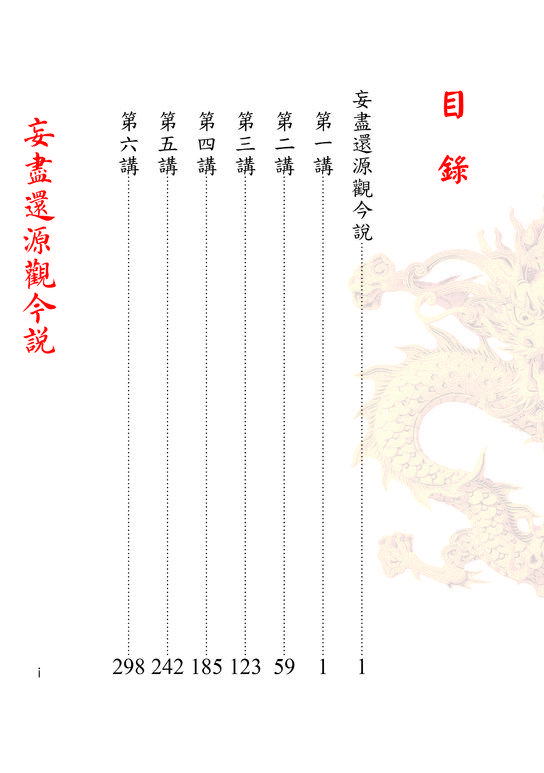 目錄
妄盡還源觀今說……1
第一講……1
第二講……59
第三講……123
第四講……185
第五講……242
第六講……298
妄盡還源觀今說
i